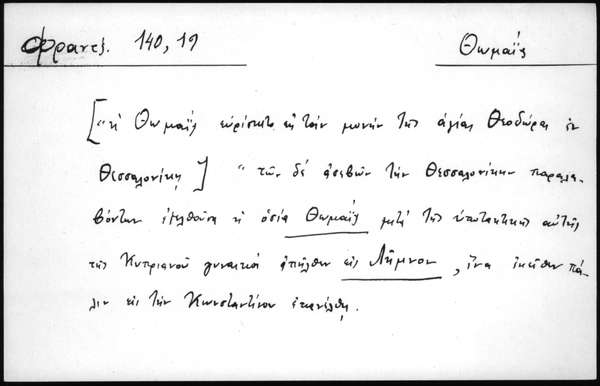 Φραντζ. 140, 19 Θωμαΐς
["ἡ Θωμαΐς εὑρίσκετο εἰς τὴν μονὴν τῆς ἁγίας Θεοδώρας ἐν
Θεσσαλονίκῃ] "τῶν δὲ ἀσεβῶν τὴν Θεσσαλονίκην παραλα-
βόντων ἐξελθοῦσα ἡ ὁσία Θωμαΐς μετὰ τῆς ὑποτακτικῆς αὐτῆς
τῆς Κυπριανοῦ γυναικὸς ἀπῆλθεν εἰς Λῆμνον, ἵνα ἐκεῖθεν πά-
λιν εἰς τὴν Κωνσταντίνου ἐπανέλθῃ.